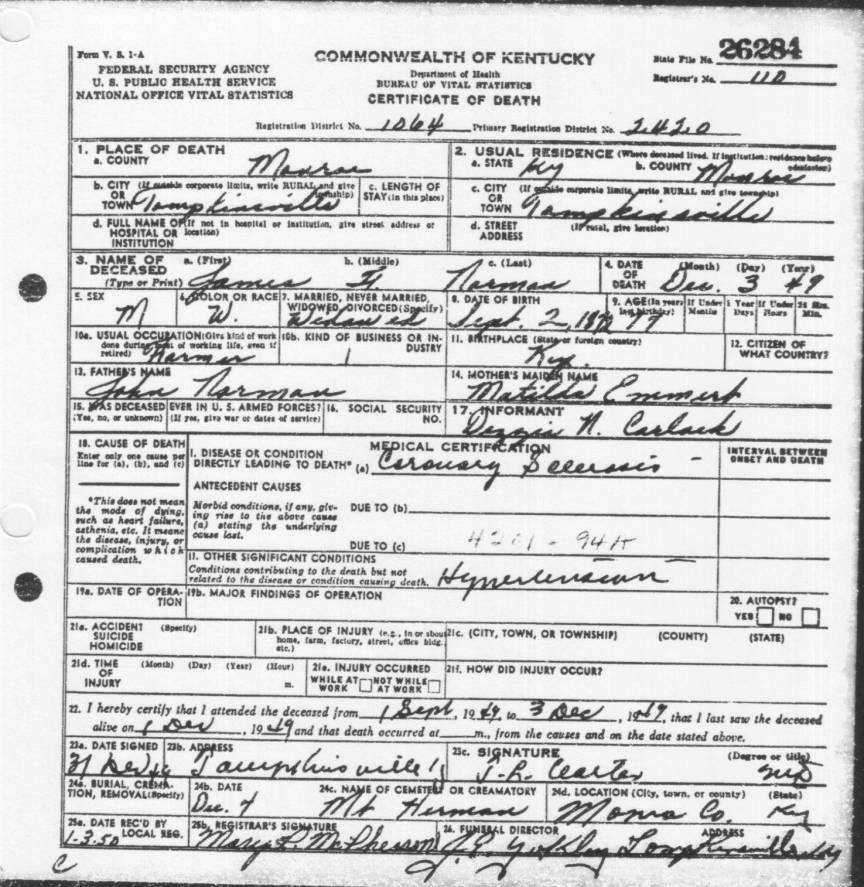 Form V. S. 1-A
FEDERAL SECURITY AGENCY
U. S. PUBLIC HEALTH SERVICE
NATIONAL OFFICE VITAL STATISTICS
COMMONWEALTH OF KENTUCKY
Department of Health
BUREAU OF VITAL STATISTICS
CERTIFICATE OF DEATH
State File No. 26284
Registrar's No. 110
Registration District No. 1064 Primary Registration District No. 2420
1. PLACE OF DEATH
a. COUNTY Monroe
2. USUAL RESIDENCE (Where deceased lived. If institution: residence before admission)
a. STATE Ky b. COUNTY Monroe
b. CITY OR TOWN (If outside corporate limits, write RURAL and give township) Tompkinsville
c. LENGTH OF STAY (in this place)
c. CITY OR TOWN (If outside corporate limits, write RURAL and give township) Tompkinsville
d. FULL NAME OF HOSPITAL OR INSTITUTION (If not in hospital or institution, give street address or location)
d. STREET ADDRESS (If rural, give location)
3. NAME OF DECEASED (Type or Print)
a. (First) James b. (Middle) c. (Last) Norman
4. DATE OF DEATH (Month) (Day) (Year) Dec. 3 49
5. SEX M
6. COLOR OR RACE W.
7. MARRIED, NEVER MARRIED, WIDOWED, DIVORCED (Specify) Widowed
8. DATE OF BIRTH Sept. 2, 
9. AGE (In years last birthday) 77 If Under 1 Year Months Days If Under 24 Hrs. Hours Min.
10a. USUAL OCCUPATION (Give kind of work done during most of working life, even if retired) Farmer
10b. KIND OF BUSINESS OR INDUSTRY
11. BIRTHPLACE (State or foreign country) Ky.
12. CITIZEN OF WHAT COUNTRY?
13. FATHER'S NAME John Norman
14. MOTHER'S MAIDEN NAME Matilda Emmert
15. WAS DECEASED EVER IN U. S. ARMED FORCES? (Yes, no, or unknown) (If yes, give war or dates of service)
16. SOCIAL SECURITY NO.
17. INFORMANT N. Carlock
18. CAUSE OF DEATH
Enter only one cause per line for (a), (b), and (c)
*This does not mean the mode of dying, such as heart failure, asthenia, etc. It means the disease, injury, or complication which caused death.
MEDICAL CERTIFICATION
INTERVAL BETWEEN ONSET AND DEATH
I. DISEASE OR CONDITION DIRECTLY LEADING TO DEATH* (a) Coronary Sclerosis -
ANTECEDENT CAUSES
Morbid conditions, if any, giving rise to the above cause (a) stating the underlying cause last.
DUE TO (b)
DUE TO (c) 4201 -
II. OTHER SIGNIFICANT CONDITIONS
Conditions contributing to the death but not related to the disease or condition causing death. Hypertension
19a. DATE OF OPERATION
19b. MAJOR FINDINGS OF OPERATION
20. AUTOPSY?
YES NO
21a. ACCIDENT SUICIDE HOMICIDE (Specify)
21b. PLACE OF INJURY (e.g., in or about home, farm, factory, street, office bldg. etc.)
21c. (CITY, TOWN, OR TOWNSHIP) (COUNTY) (STATE)
21d. TIME OF INJURY (Month) (Day) (Year) (Hour) m.
21e. INJURY OCCURRED
WHILE AT WORK NOT WHILE AT WORK
21f. HOW DID INJURY OCCUR?
22. I hereby certify that I attended the deceased from 1 Sept, 1949, to 3 Dec, 1949, that I last saw the deceased
alive on 1 Dec, 1949 and that death occurred at m., from the causes and on the date stated above.
23a. DATE SIGNED 31 Dec 49
23b. ADDRESS Tompkinsville
23c. SIGNATURE (Degree or title) Carter MD
24a. BURIAL, CREMATION, REMOVAL (Specify)
24b. DATE Dec. 4
24c. NAME OF CEMETERY OR CREMATORY Mt Herman
24d. LOCATION (City, town, or county) (State) Monroe Co. Ky
25a. DATE REC'D BY LOCAL REG. 1-3-50
25b. REGISTRAR'S SIGNATURE Mary L. McPherson
26. FUNERAL DIRECTOR ADDRESS Tompkinsville Ky